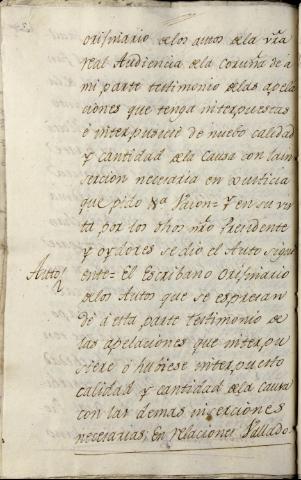 orisinario de los autos de la vra
real Audiencia de la coruña de a
mi parte testimonio de las apela
ciones que tenga interpuestas
e interpusiere de nuebo calidad
y cantidad de la causa con la in
sercion necesaria en xusticia
que pido &a Paion= Y en su vis
ta por los dhos nro Presidente
y oydores se dio el Auto sigui
Auto
ente= El Escribano Orisinario
de los Autos que se espresan
de a esta parte testimonio de
las apelaciones que interpu
siere o hubiese interpuesto
calidad y cantidad de la causa
con las demas inserciones
necesarias; En relaciones Vallado